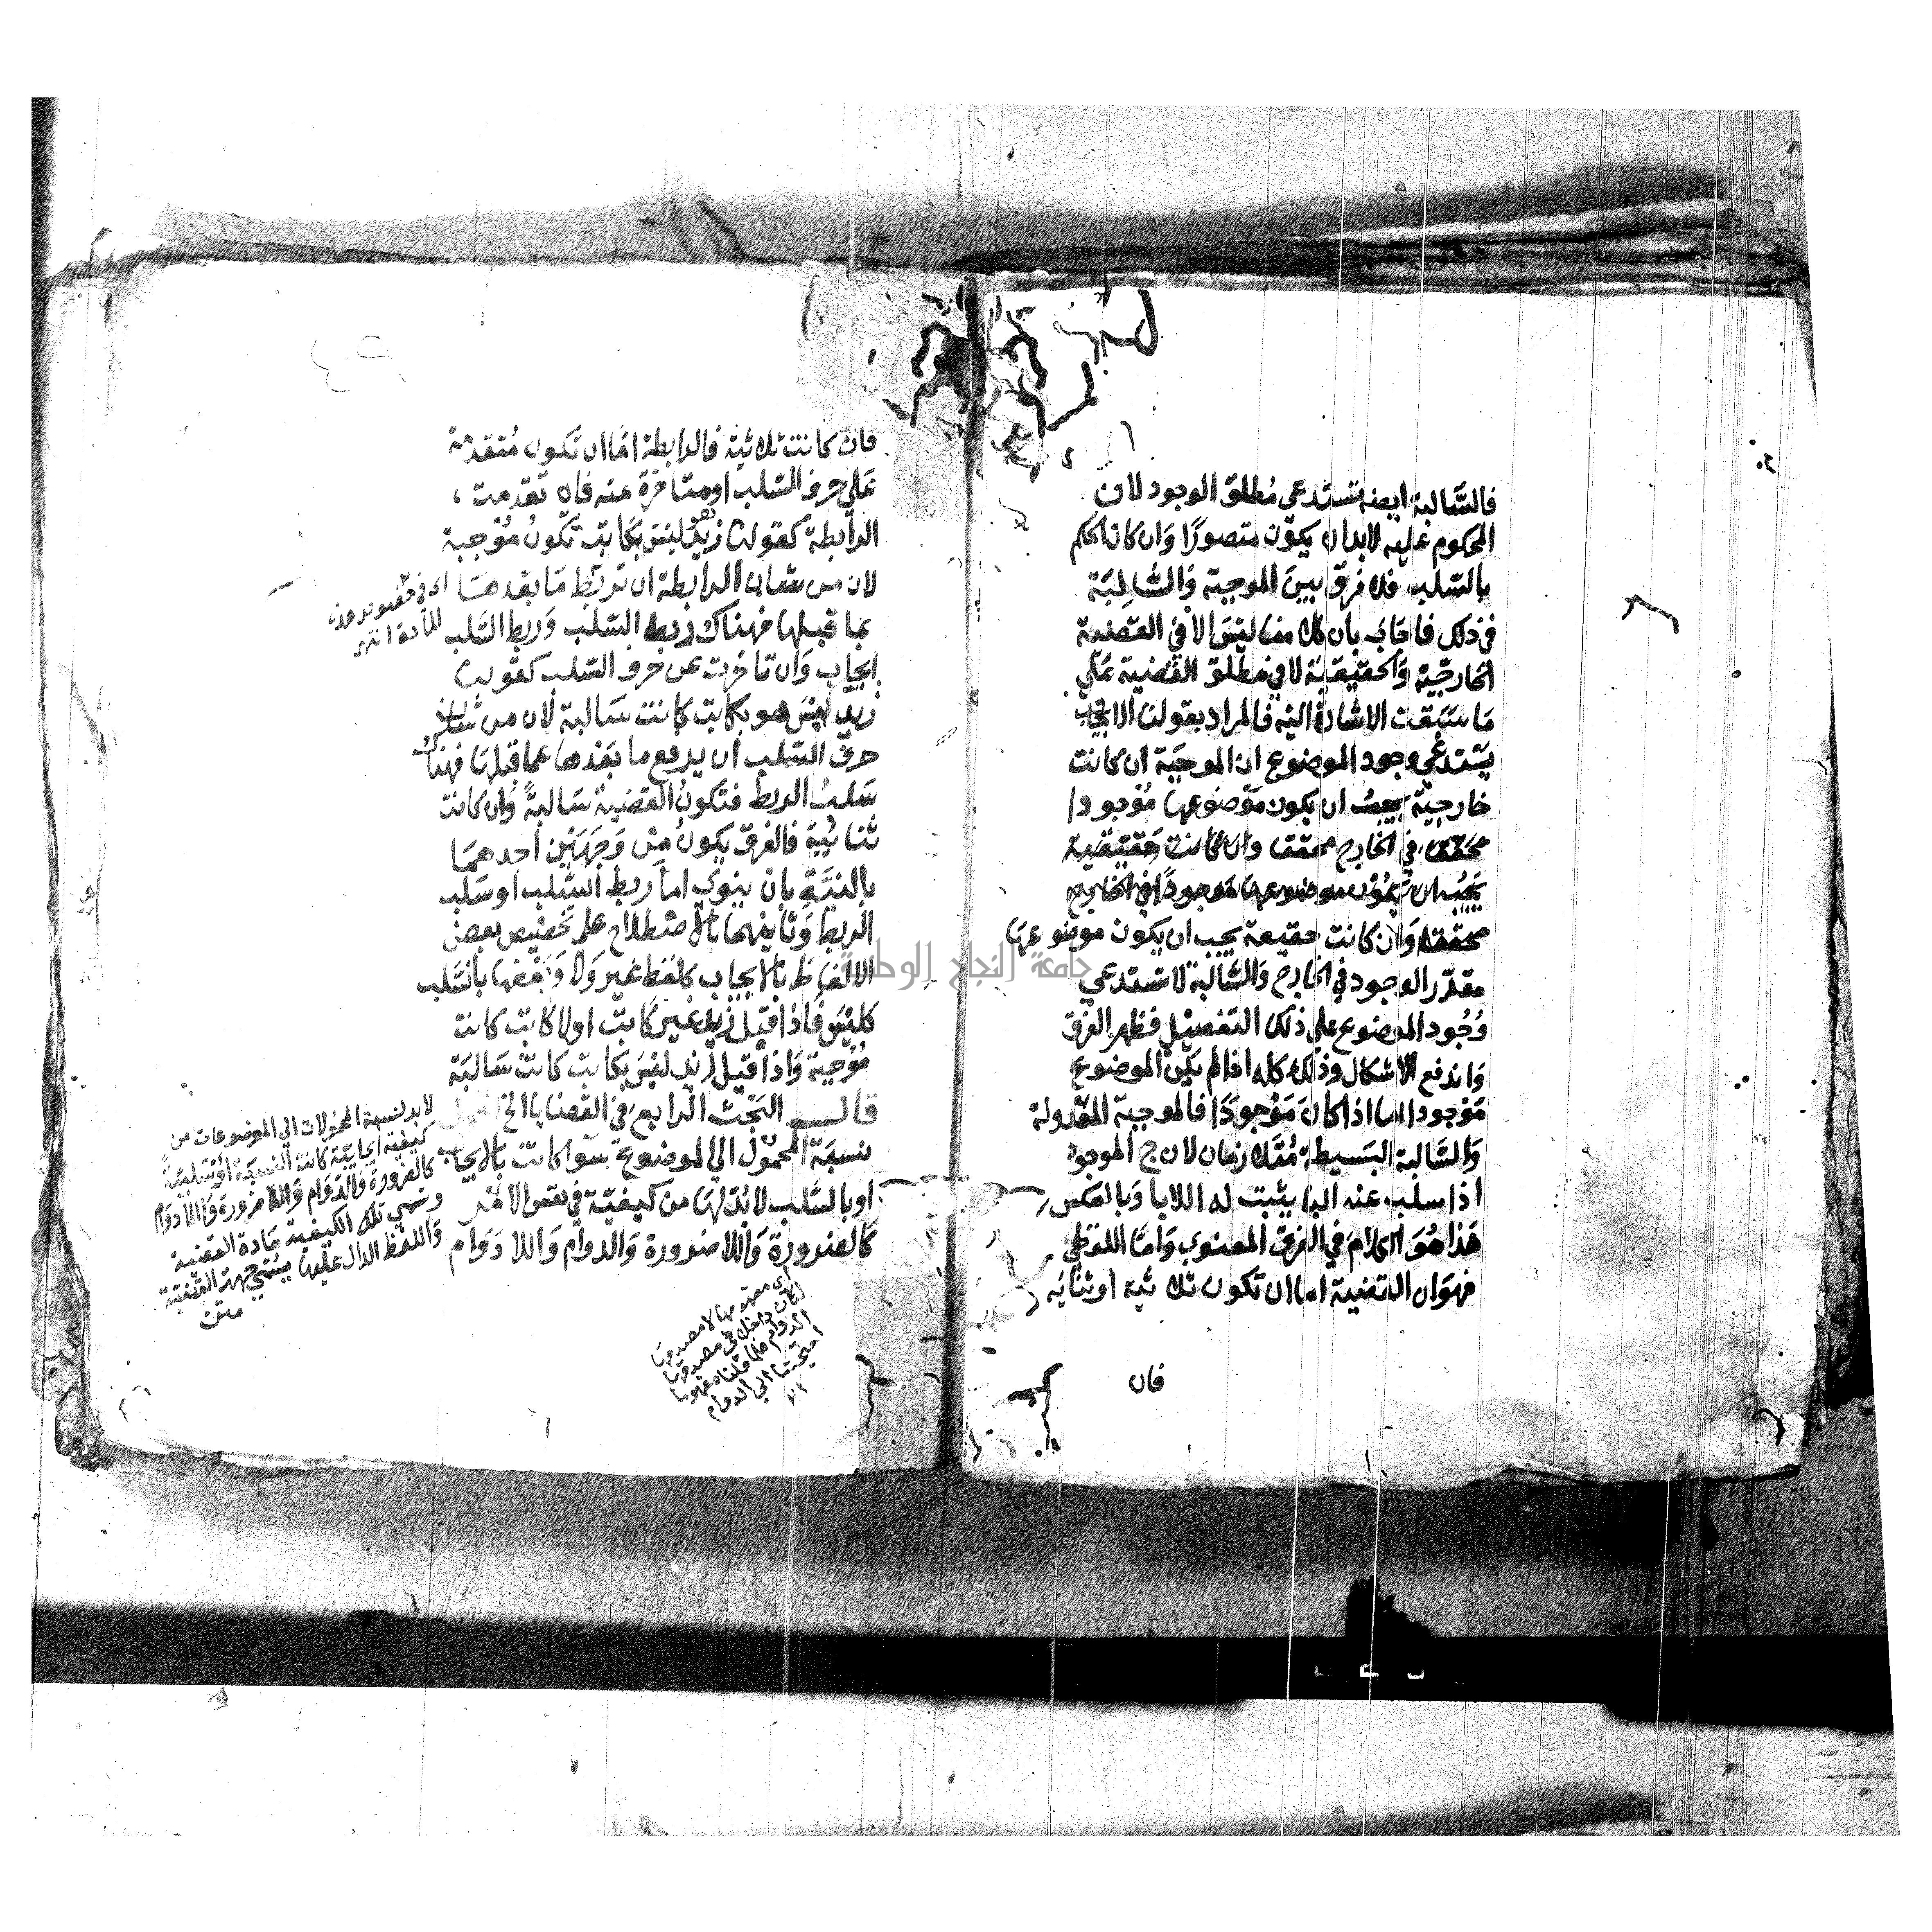 فالسَّالبة ايضا تستدعي مُطلق الوجود لان
المحكوم عليه لابد ان يكون متصورًا وَان كان الحكم
بالسّلب فلا فرق بين الموجبة وَالسَّالِبَة
في ذلك فاجَابَ بان كلامنا ليسَ الا في القضية
الخارجيّة وَالحقيقية لا في مطلق القضية عَلي
مَا سَبَقت الاشارة اليه فالمراد بقولنا الايجاب
يَسْتدعي وجود الموضوع ان الموجبَة ان كانت
خارجيّة يجبُ ان يكون مَوضوعها مَوْجودا
محققا في الخارج محققا وان كانت حقيقية
يَجبُ ان يكون موضوعها مَوجودًا في الخارج
محققا وَان كانت حقيقة يجب ان يكون موضوعها
مقدّر الوجود في الخارج وَالسَّالبة لا تستدعي
وُجُود الموضوع علي ذلك التفصيل فظهر الفرق
وَاندفع الاشكال وَذلك كله اذا لم يكن الموضوع
مَوْجودا اما اذا كانَ مَوْجودًا فالموجبة المعْدولة
وَالسَّالبة البَسيطة مُتَلازمان لان ح الموجود
اذا سلب عنه البا يثبت له اللابا وَبالعكس
هَذا هُوَ الكلامَ في الفرق المعنوي وَامَّا اللفظي
فهوَ ان القضية اما ان تكون ثلاثية او ثنائيه
فان
فان كانت ثلاثيَّة فالرابطة امَّا ان تكون مُتقدمة
عَلي حرف السّلب او متاخرة عنه فان تقدمت
الرابطة كقولنا زيد هو ليسَ بكَاتب تكونُ مُوْجبة
لان من شان الرابطة ان تربط مَا بعْدهَا
بما قبلها فهناك ربط السّلب وَربط السّلب
ايجاب وَان تاخرت عن حرف السّلب كقولنا
زيد ليسَ هو بكاتب كانت سَالبة لان من شان
حرف السّلب ان يرفع ما بَعْدها عما قبلهَا فهناك
سَلبُ الربط فتكونُ القضية سَالبةً وَان كانت
ثنائيّة فالفرق يكونُ منْ وَجهَيْن احدهمَا
بالنيَّة بان ينوي اما ربط السَّلب او سَلب
الربط وَثانيهما بالاصْطلاح على تخصيص بعض
الالفاظ بالايجاب كلفظ غير وَلا وَبعْضها بالسَّلب
كليْسَ فاذا قيل زيد غير كَاتب اولا كاتب كانت
مُوْجبة وَاذا قيل زيد ليْسَ بكاتب كانت سَالبَة
قال البَحْث الرابع في القضايا الخ
نسبَة المحمُول الي الموضوع سَوا كانت بالايجاب
او بالسَّلب لابُدّ لهَا من كيفيّة في نفس الامْر
كَالضرورة وَاللاضرورة وَالدوام وَاللادَوام
المادة انتهى
لابد لنسبة المحمُولات الي الموضوعات من
كيفية ايجابيّة كانت النسبَة اوْ سَلبيّةً
كالضرورة وَالدّوَام وَاللاضرورة وَاللادوَام
وتسمي تلك الكيفية مَادة القضية
وَاللفظ الدال عليهَا يسَمّي جهة القضية
متن
جامعة النجاح الوطنية